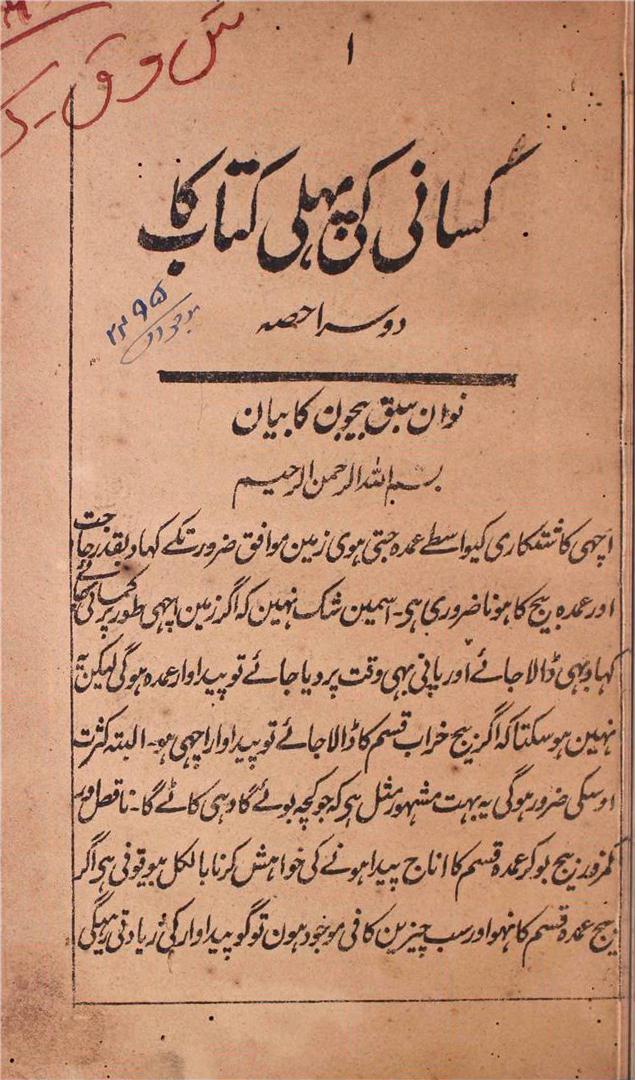 س و ق ک
۱
کسانی کی پہلی کتاب کا
دوسرا حصہ
۲۲۹۵
نوان سبق بیجون کا بیان
بسم اللہ الرحمن الرحیم
اچھی کاشتکاری کیواسطے عمدہ جتی ہوی زمین موافق ضرورت کے کہاد بقدر حاجت
اور عمدہ بیج کا ہونا ضروری ہی۔ اسمین شک نہین کہ اگر زمین اچھی طور پر کمائی جائے
کہاد بہی ڈالا جائے اور پانی بہی وقت پر دیا جائے تو پیداوار عمدہ ہوگی لیکن یہ
نہین ہو سکتا کہ اگر بیج خراب قسم کا ڈالا جائے تو پیداوار اچہی ہو۔ البتہ کثرت
اوسکی ضرور ہوگی یہ بہت مشہور مثل ہی کہ جو کچہ بوئے گا وہی کاٹے گا۔ ناقص اور
کمزور بیج بوکر عمدہ قسم کا اناج پیدا ہونے کی خواہش کرنا بالکل بیوقوفی ہی اگر
بیج عمدہ قسم کا نہو اور سب چیزین کافی موجود ہون تو گو پیداوار کی زیادتی رہیگی